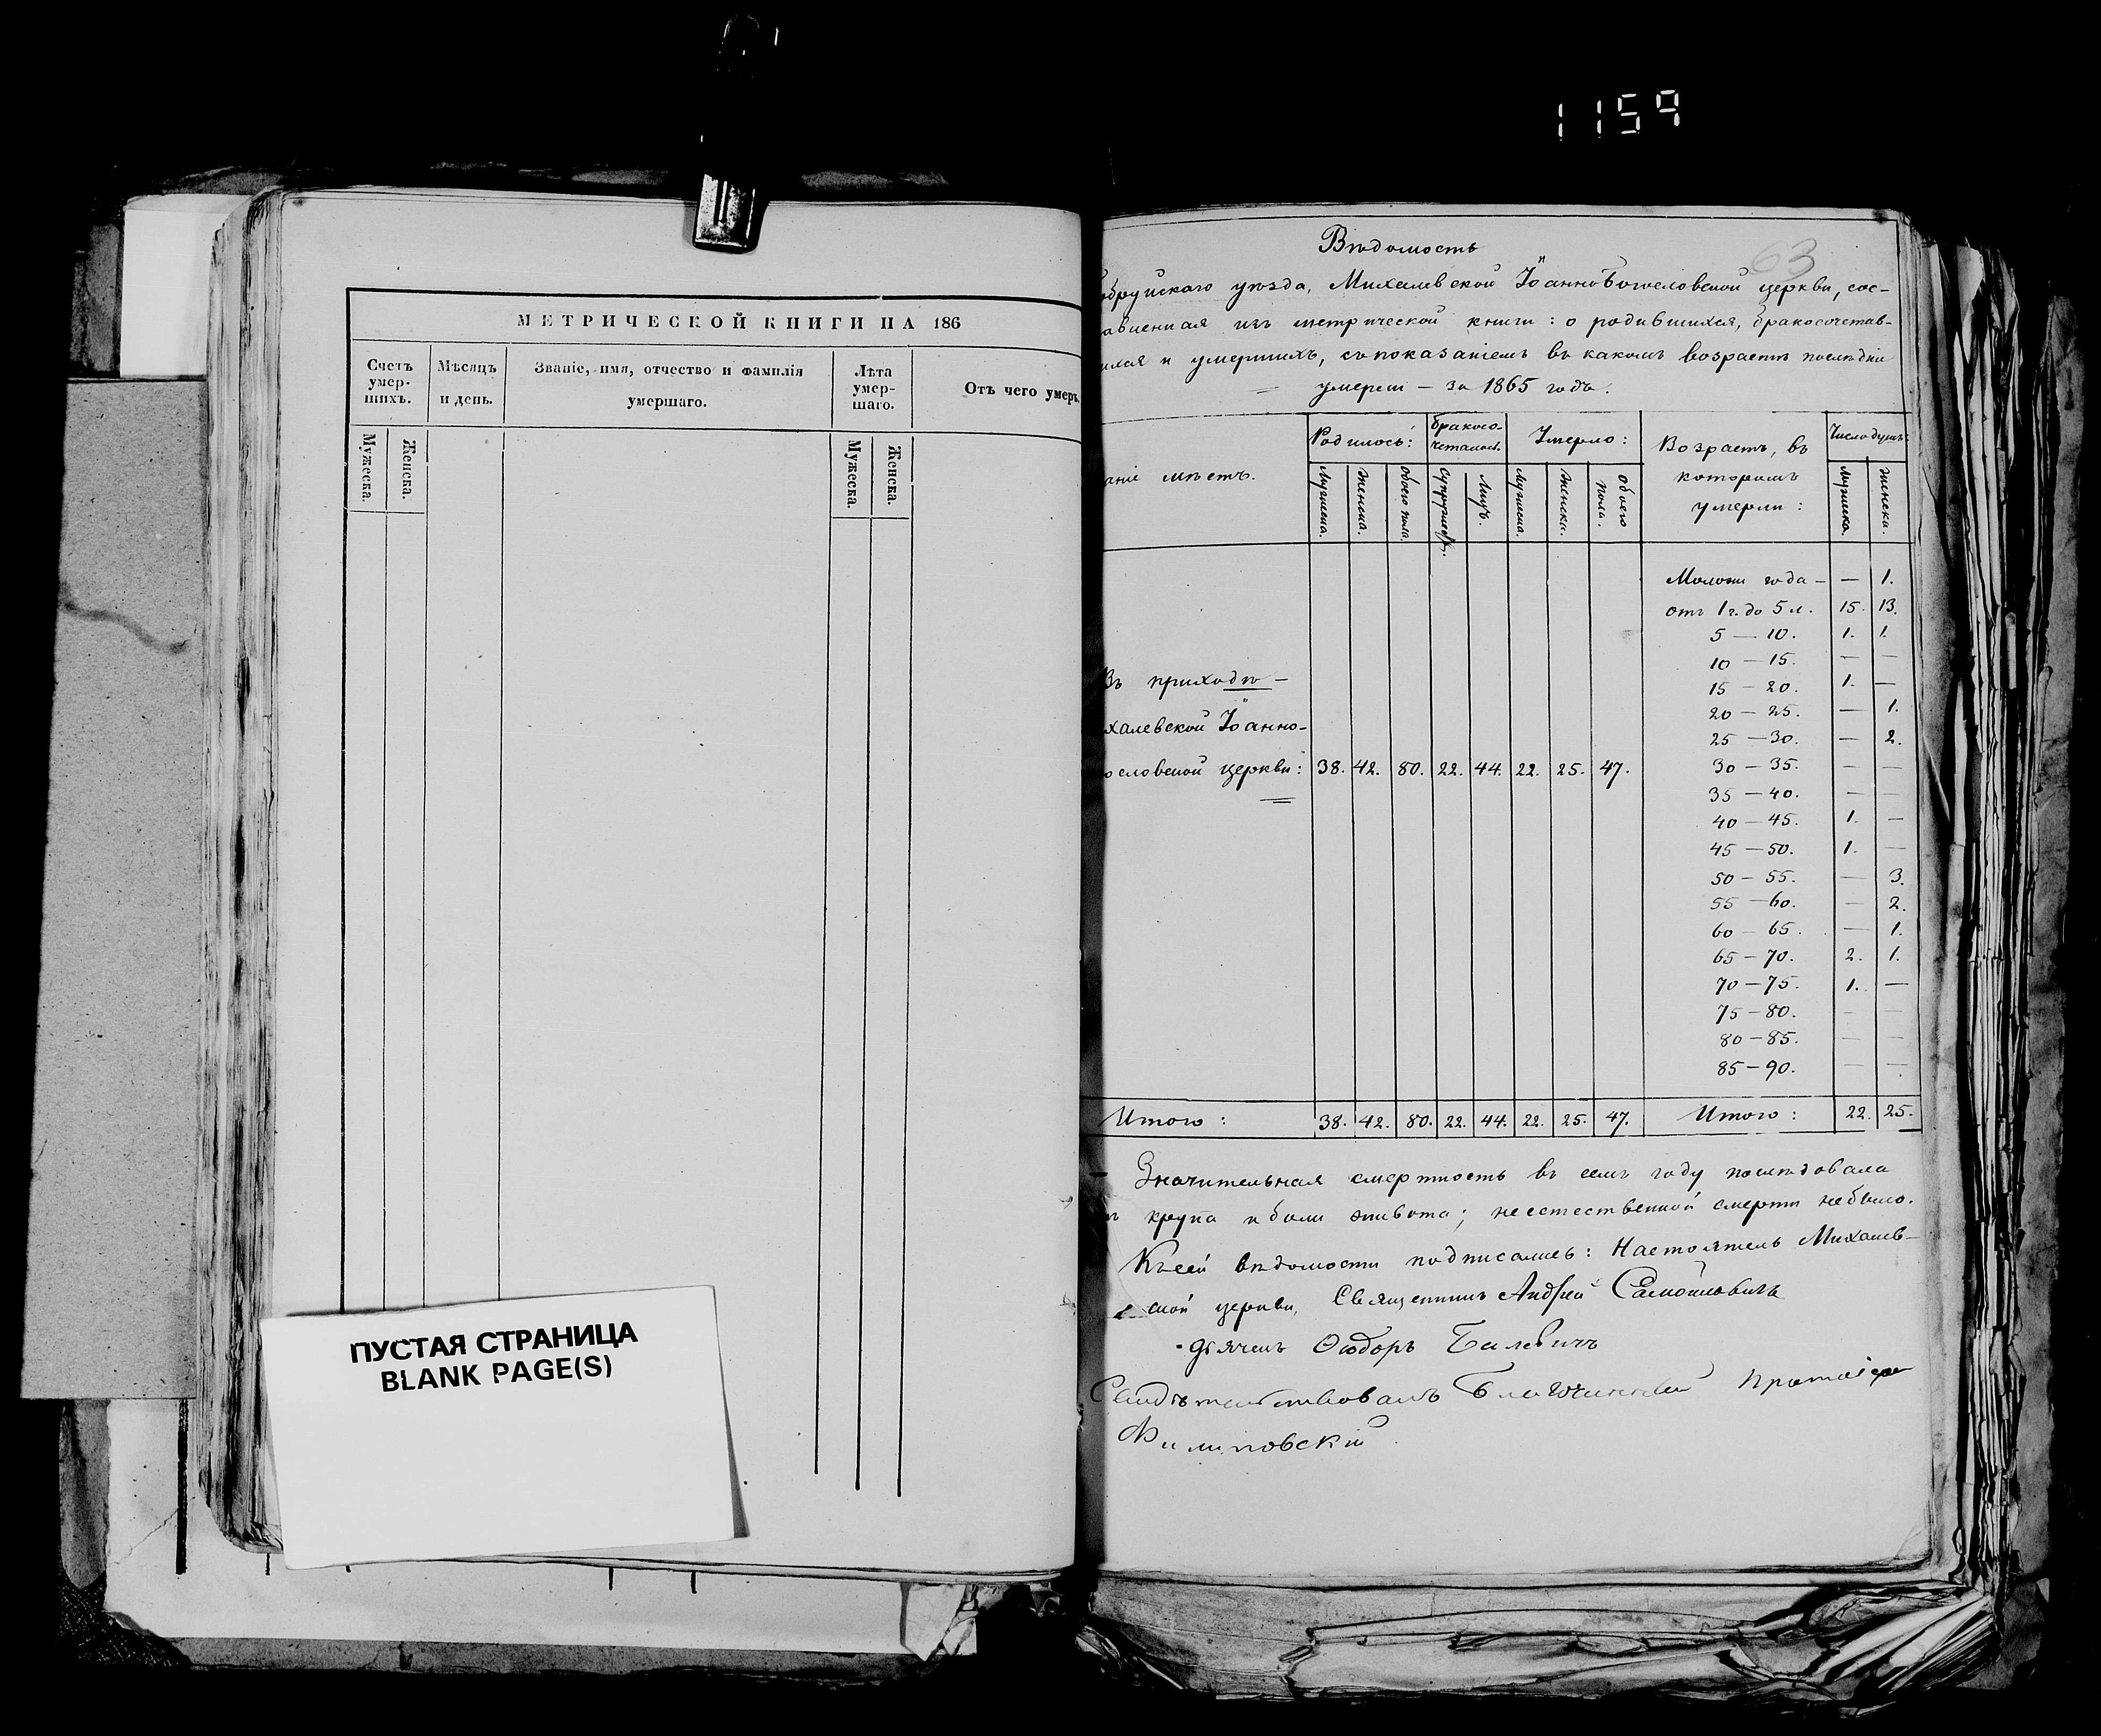 1159
МЕТРИЧЕСКОЙ КНИГИ НА 186
Счетъ умер-шихъ.
Мѣсяцъ и день.
Званіе, имя, отчество и фамилія умершаго.
Лѣта умер-шаго.
Отъ чего умеръ.
Мужеска. Женска. Мужеска. Женска.
ПУСТАЯ СТРАНИЦА
BLANK PAGE(S)
63
Вѣдомость
обруйскаго уѣзда, Михалевской ІоанноБогословской церкви, сос-
авленная изъ метрической книги: о родившихся, бракосочетав-
ихся и умершихъ, съ показаніемъ въ какомъ возрастѣ послѣдніе
умерли — за 1865 годъ.
аніе мѣстъ.
Родилось:
Бракосо-четалось.
Умерло:
Возрастъ, въ которомъ умерли:
Число душъ:
Мужеска. Женска. Обоего пола. Супружествъ. Лицъ. Мужеска. Женска. Обоего пола. Мужеска. Женска.
Моложе года — — 1.
отъ 1 г. до 5 л. 15. 13.
5 — 10. 1. 1.
10 — 15. — —
15 — 20. 1. —
20 — 25. — 1.
25 — 30. — 2.
30 — 35. — —
35 — 40. — —
40 — 45. 1. —
45 — 50. 1. —
50 — 55. — 3.
55 — 60. — 2.
60 — 65. — 1.
65 — 70. 2. 1.
70 — 75. 1. —
75 — 80. — —
80 — 85. — —
85 — 90. — —
Въ приходѣ —
халевской Іоанно-
ословской церкви: 38. 42. 80. 22. 44. 22. 25. 47.
Итого: 38. 42. 80. 22. 44. 22. 25. 47. Итого: 22. 25.
Значительная смертность въ семъ году послѣдовала
крупа и боли живота; неестественной смерти не было.
Къ сей вѣдомости подписались: Настоятель Михалев-
ской церкви, Священникъ Андрей Самойловичъ
Дьячекъ Ѳеодоръ Билевичъ
Свидѣтельствовалъ Благочинный Протоіерей
Филиповскій